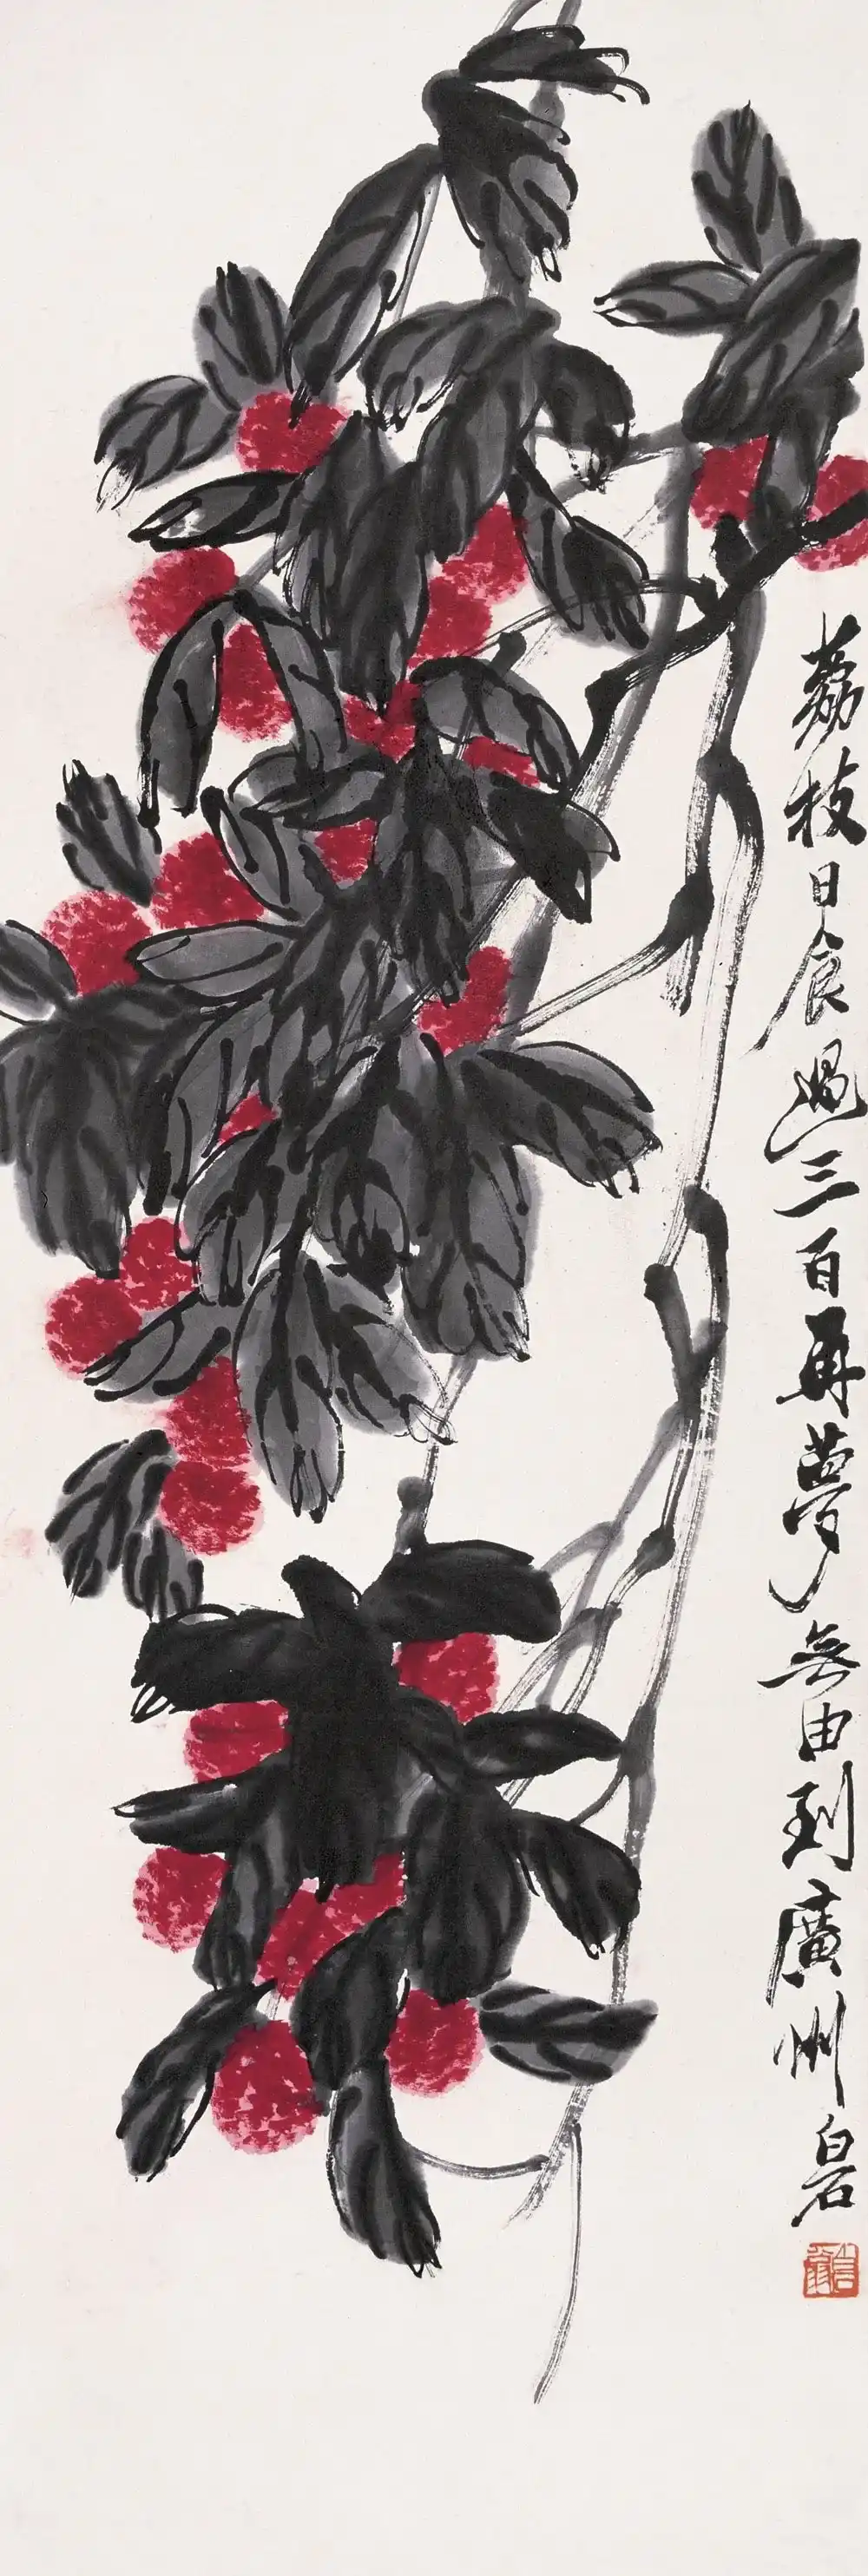 荔枝日食過三百再夢無由到廣州白石
白石翁